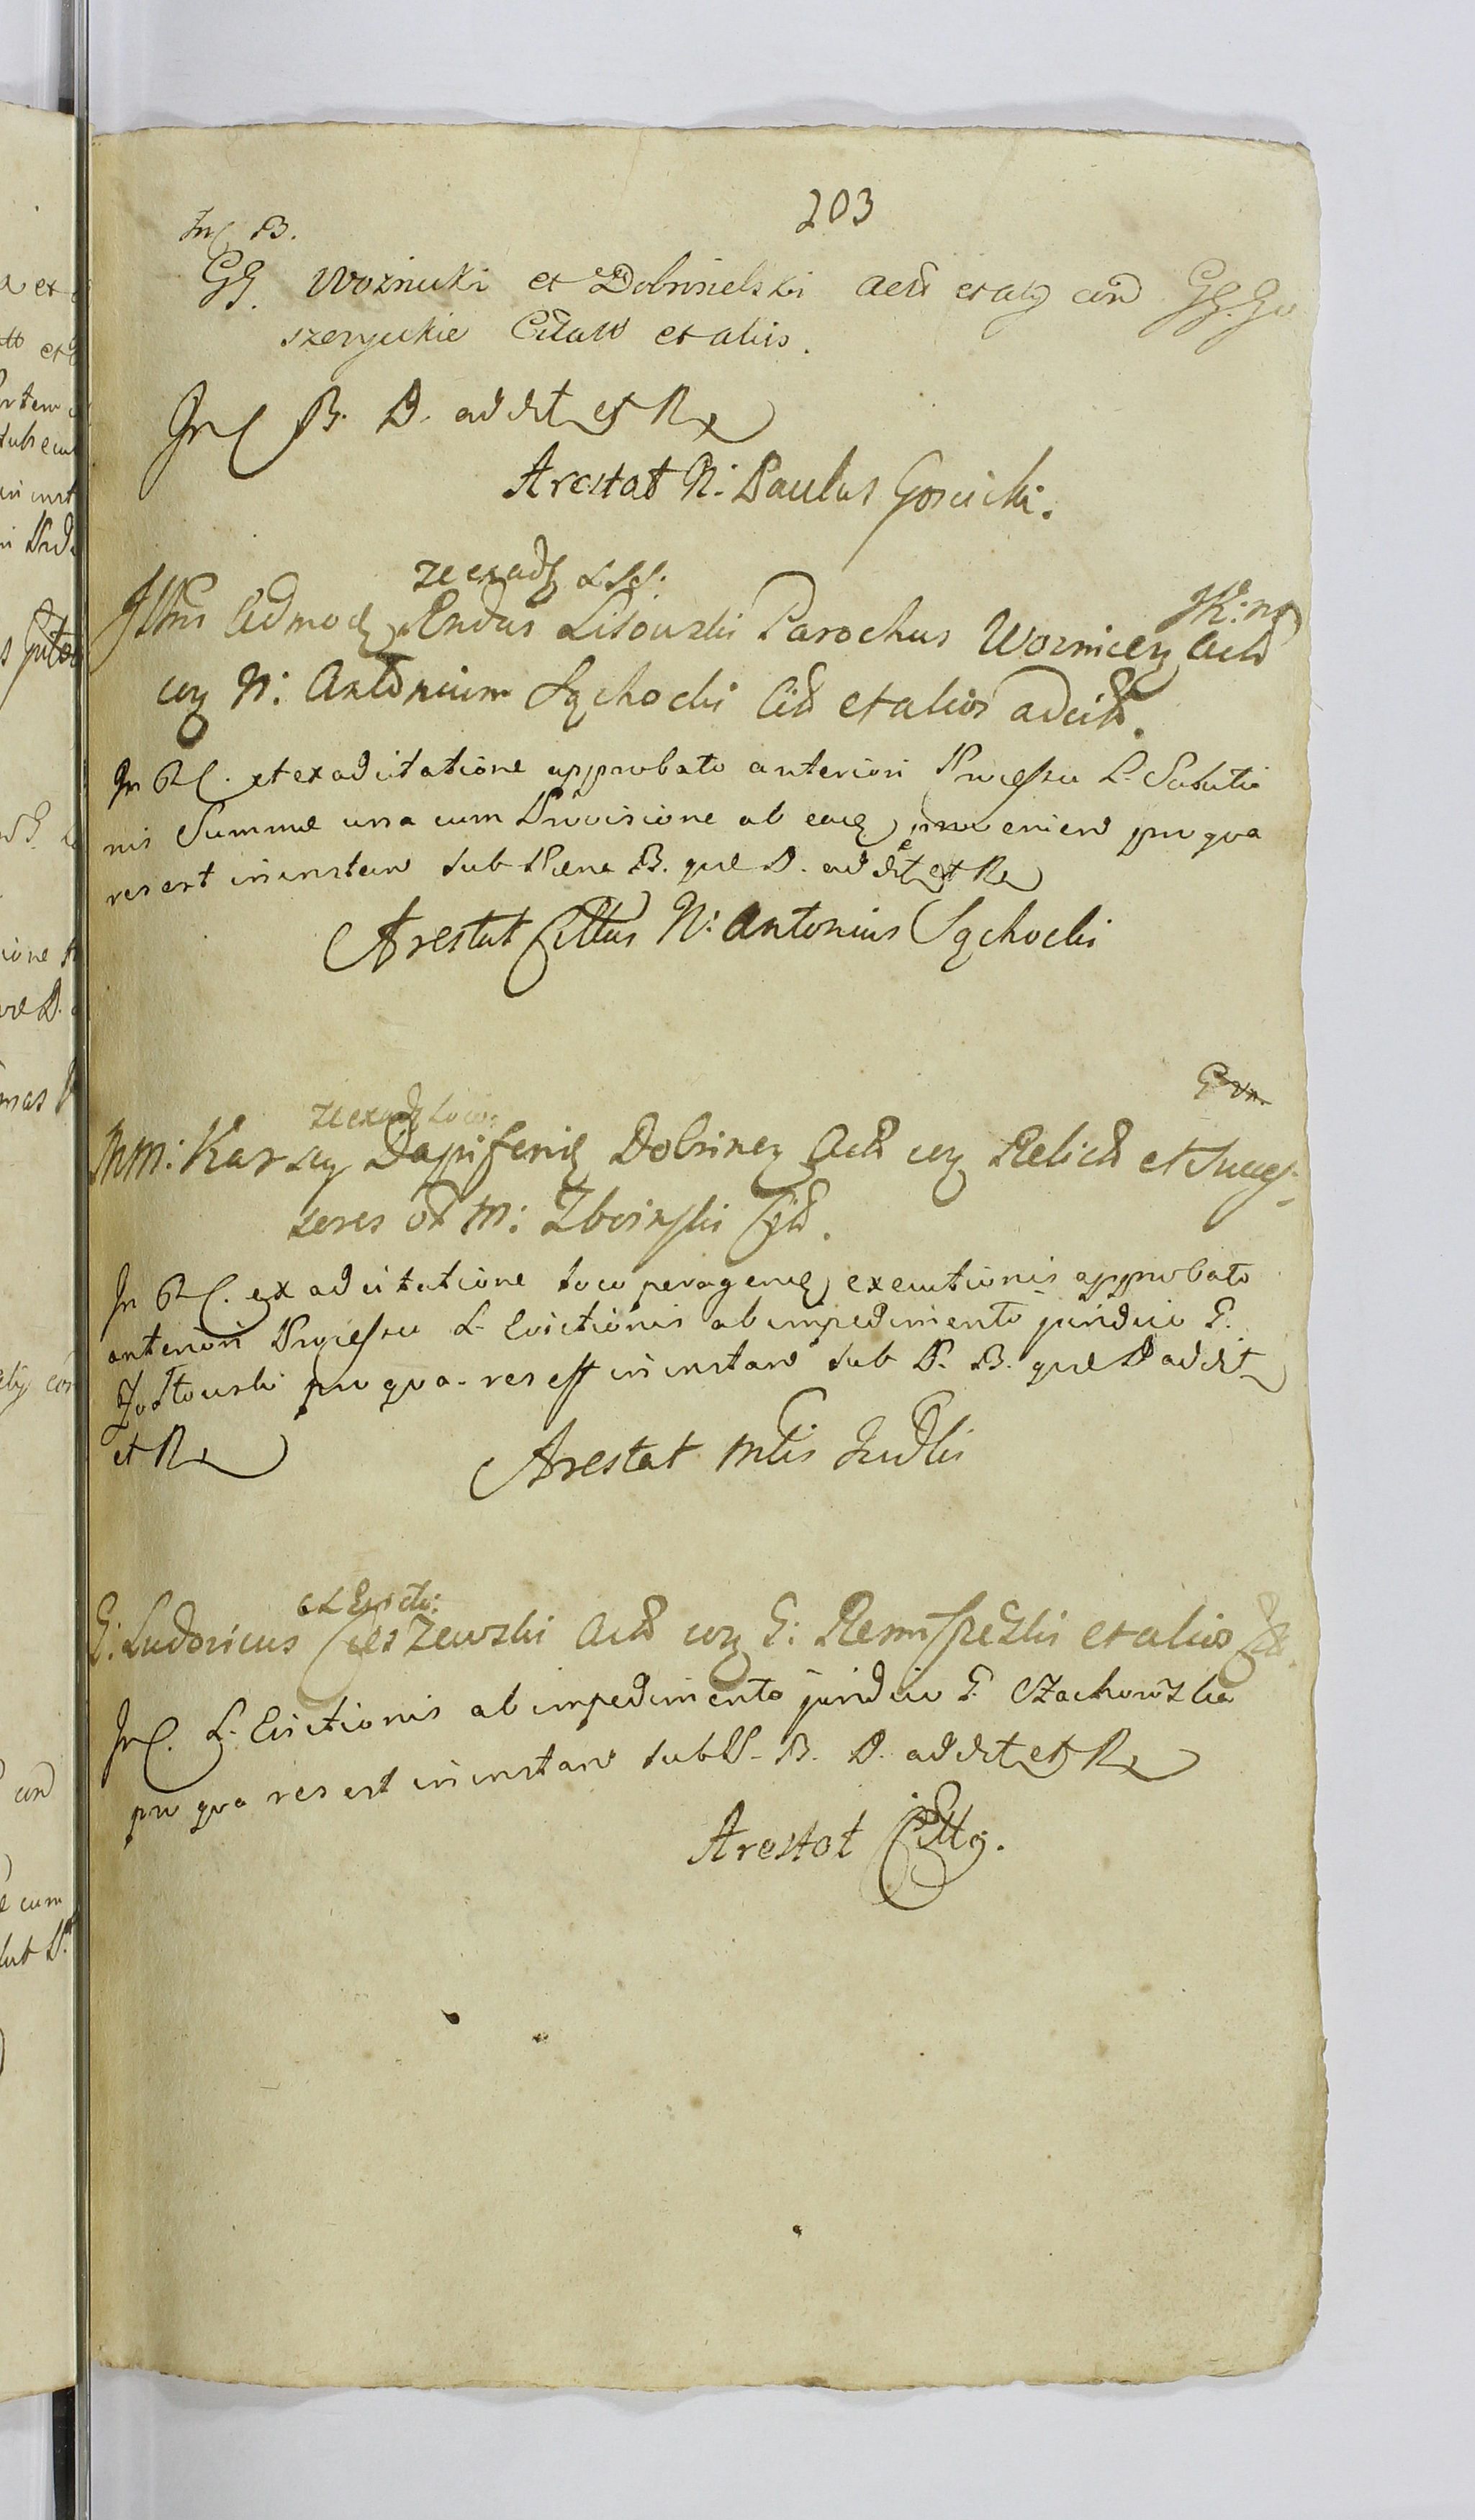 203
In C B.
GG. Woznicki et Dobrosielski Act et alij con GG. Go
szczyckie Citat et alios.
In C B. D. addit et Rx
Arestat N: Paulus Goscicki.
ze exadq L Sol:
Illris Admodq Rndus Lisowski Parochus Woznicen Act
con N: Antonium Sqchocki Cit et alios adcit.
In R C. et ex adcitatione approbato anteriori Processu L. Soluti
nis Summae una cum Provisione ab eadq provenien pro qua
res est in instan sub Paena B. que D. addit et Rx
Arestat Cittus N: Antonius Sqchocki
G. Vn.
ze exadq Loco:
MM: Karscy Dapiferid Dobrinen Act con Relict et Succes-
sores ol M: Zboinski Cit.
In R C. ex adcitatione loco peragend executionis approbato
anteriori Processu L. Evictionis ab impedimento juridico G.
pro qua res est in instan sub P. B. que D addit
et Rx
Arestat Mtis Judlis
a L Evicti:
G: Ludovicus Cieszewski Act con G: et alios Cit.
In C. L. Evictionis ab impedimento juridico G. Czachowska
pro qua res est in instan sub P. B. D. addit et Rx
Arestat Citts.